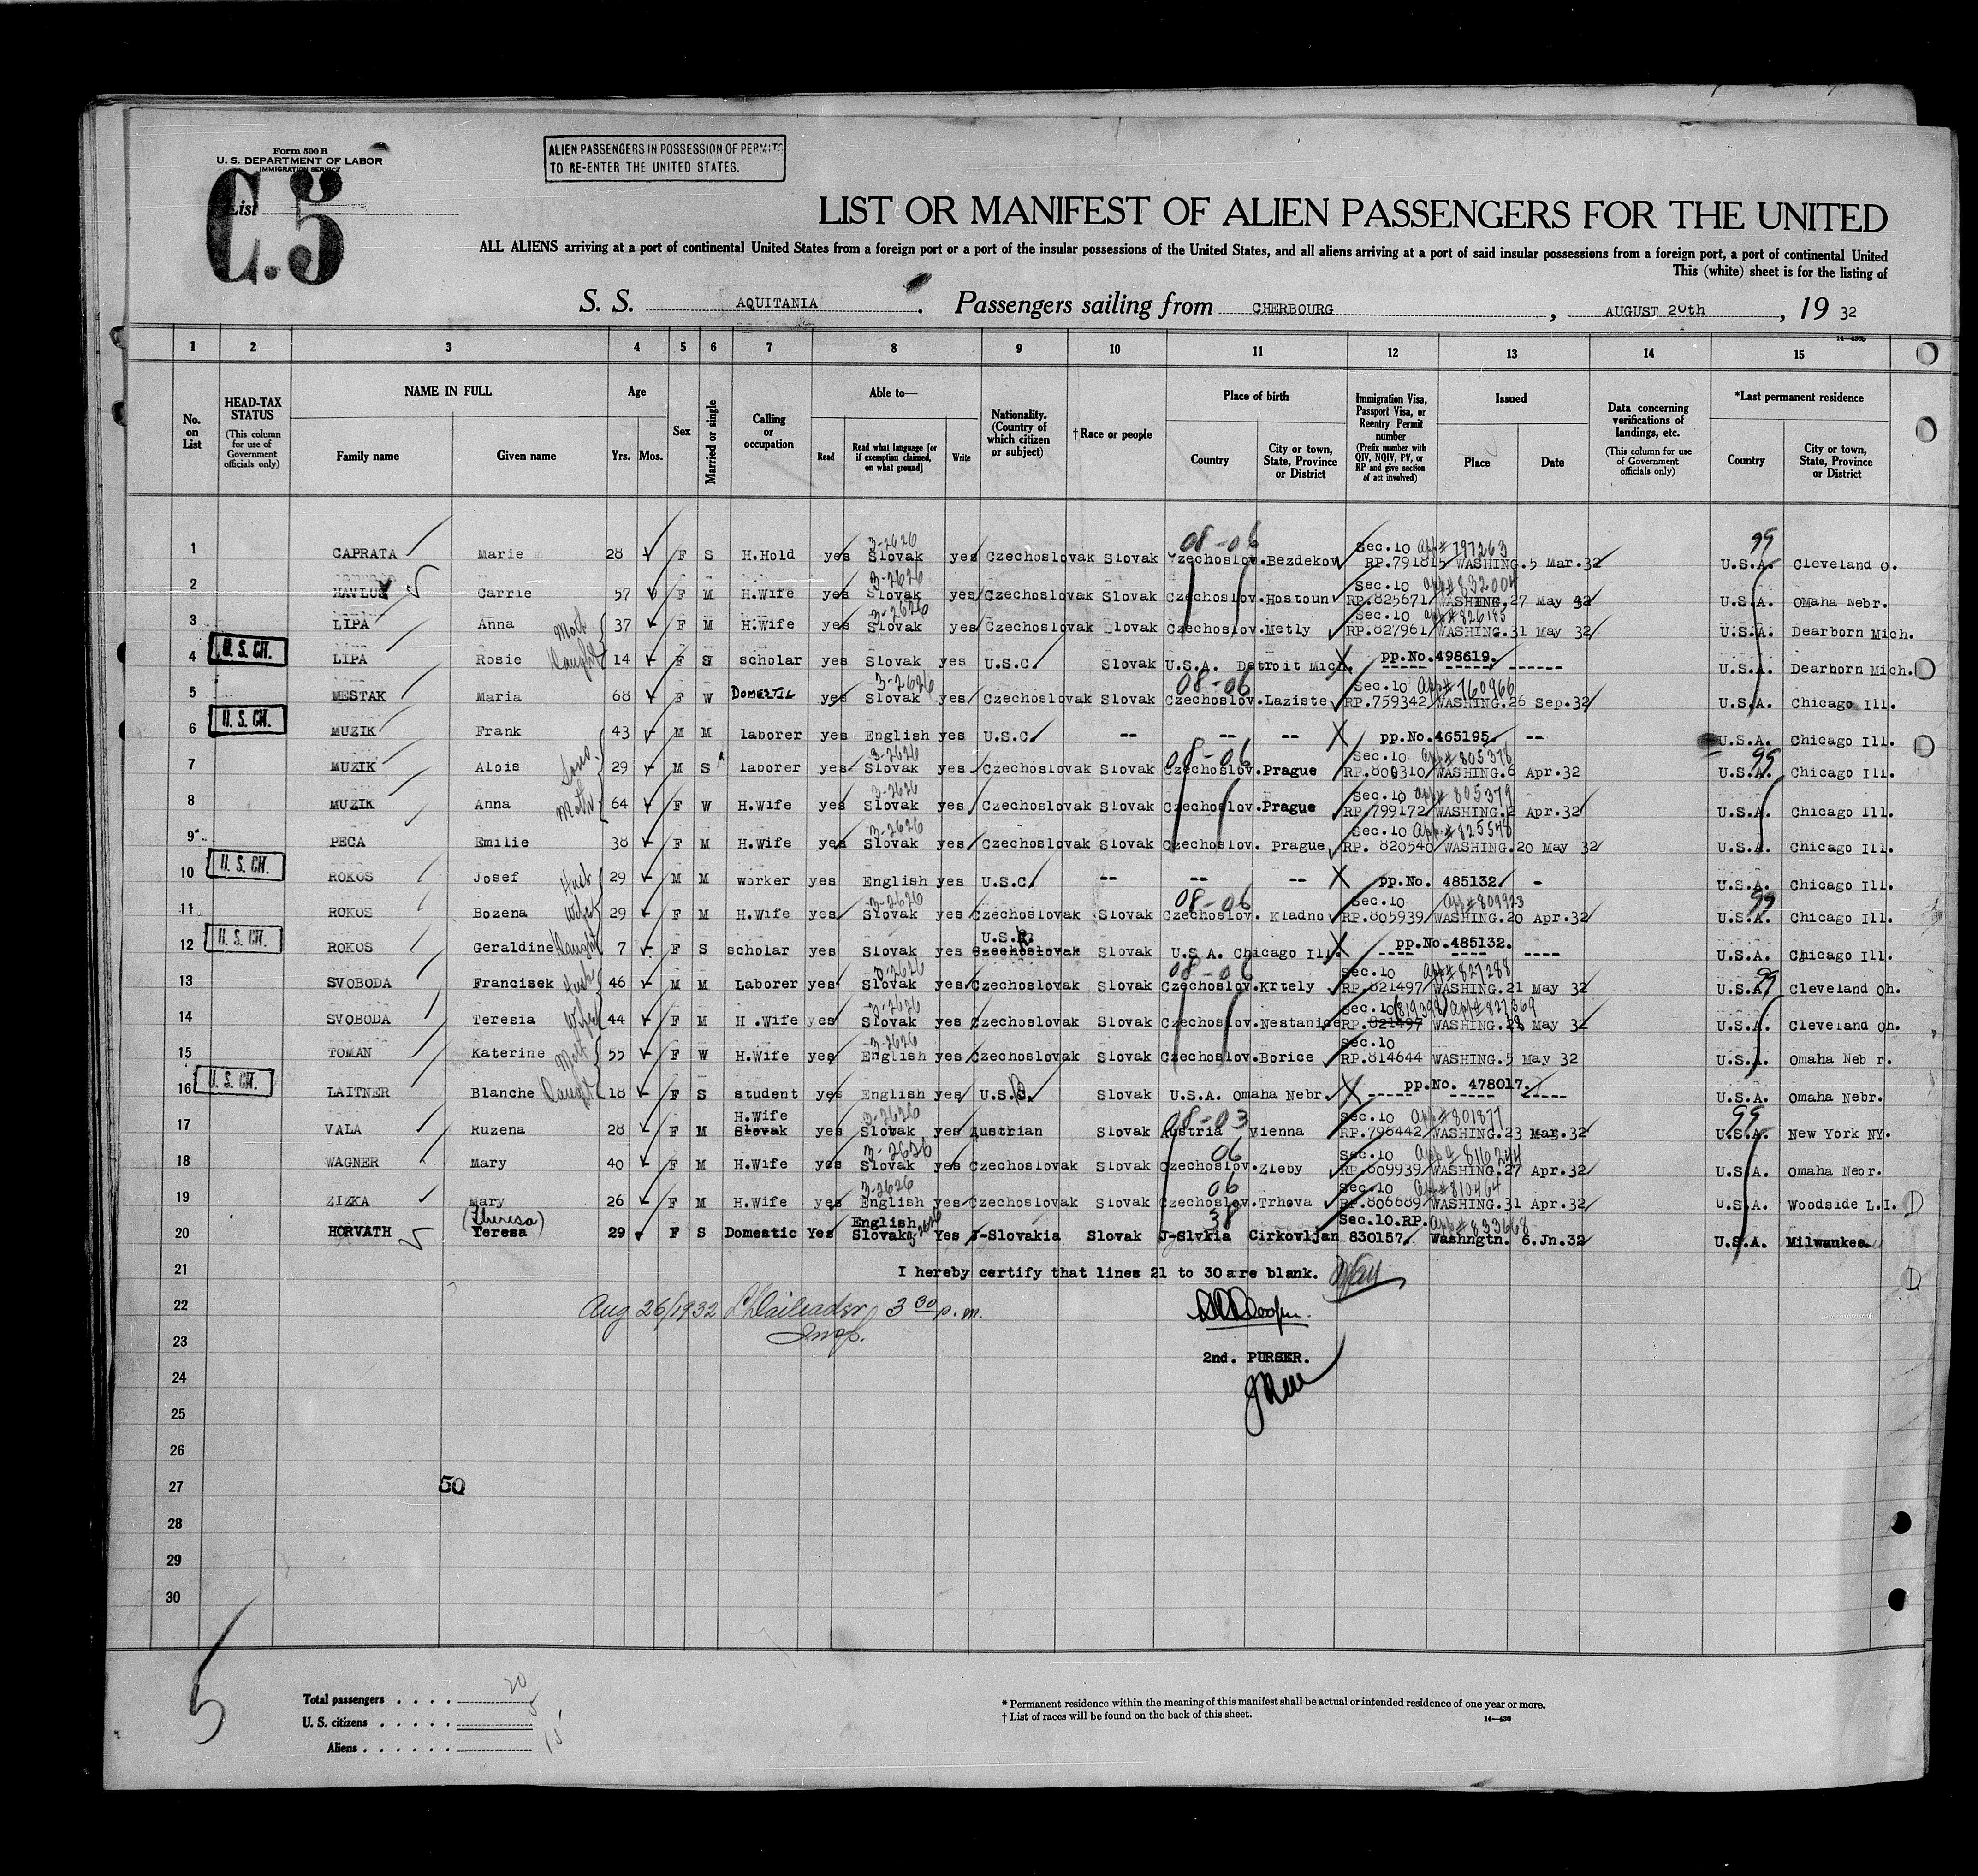 Form 500 B
U. S. DEPARTMENT OF LABOR
IMMIGRATION SERVICE
ALIEN PASSENGERS IN POSSESSION OF PERMITS
TO RE-ENTER THE UNITED STATES.
List
C.5
LIST OR MANIFEST OF ALIEN PASSENGERS FOR THE UNITED
ALL ALIENS arriving at a port of continental United States from a foreign port or a port of the insular possessions of the United States, and all aliens arriving at a port of said insular possessions from a foreign port, a port of continental United
This (white) sheet is for the listing of
S. S. AQUITANIA. Passengers sailing from CHERBOURG, AUGUST 20th, 19 32
14—430b
1 2 3 4 5 6 7 8 9 10 11 12 13 14 15
No. on List
HEAD-TAX STATUS (This column for use of Government officials only)
NAME IN FULL Family name Given name
Age Yrs. Mos.
Sex
Married or single
Calling or occupation
Able to— Read Read what language [or if exemption claimed, on what ground] Write
Nationality. (Country of which citizen or subject)
†Race or people
Place of birth Country City or town, State, Province or District
Immigration Visa, Passport Visa, or Reentry Permit number (Prefix number with QIV, NQIV, PV, or RP and give section of act involved)
Issued Place Date
Data concerning verifications of landings, etc. (This column for use of Government officials only)
*Last permanent residence Country City or town, State, Province or District
3-2626 08-06 Sec.10 App# 797263 99
1 CAPRATA Marie 28 F S H.Hold yes Slovak yes Czechoslovak Slovak Czechoslov. Bezdekov RP.791815 WASHING. 5 Mar.32 U.S.A. Cleveland O.
3-2626 Sec.10 App# 832004
2 Carrie 57 F M H.Wife yes Slovak yes Czechoslovak Slovak Czechoslov. Hostoun RP.825671 WASHING. 27 May 32 U.S.A. OMaha Nebr.
3-2626 Sec.10 App# 826185
3 LIPA Anna Moth 37 F M H.Wife yes Slovak yes Czechoslovak Slovak Czechoslov. Metly RP.827961 WASHING. 31 May 32 U.S.A. Dearborn Mich.
U. S. CH.
4 LIPA Rosie Daught 14 F S scholar yes Slovak yes U.S.C. Slovak U.S.A. Detroit Mich. pp.No.498619. ------ U.S.A. Dearborn Mich.
3-2626 08-06 Sec.10 App# 760966
5 MESTAK Maria 68 F W DOMESTIC yes Slovak yes Czechoslovak Slovak Czechoslov. Laziste RP.759342 WASHING. 26 Sep.32 U.S.A. Chicago Ill.
U. S. CH.
6 MUZIK Frank 43 M M laborer yes English yes U.S.C. -- -- -- pp.No.465195. -- U.S.A. Chicago Ill.
3-2626 08-06 Sec.10 App# 805378 99
7 MUZIK Alois Sons 29 M S laborer yes Slovak yes Czechoslovak Slovak Czechoslov. Prague RP.800310 WASHING. 6 Apr.32 U.S.A. Chicago Ill.
3-2626 Sec.10 App# 805379
8 MUZIK Anna Moth 64 F W H.Wife yes Slovak yes Czechoslovak Slovak Czechoslov. Prague RP.799172 WASHING. 2 Apr.32 U.S.A. Chicago Ill.
3-2626 Sec.10 App.# 825548
9 PECA Emilie 38 F M H.Wife yes Slovak yes Czechoslovak Slovak Czechoslov. Prague RP. 820540 WASHING. 20 May 32 U.S.A. Chicago Ill.
U. S. CH.
10 ROKOS Josef Husb 29 M M worker yes English yes U.S.C. -- -- -- pp.No. 485132. - U.S.A. Chicago Ill.
3-2626 08-06 Sec.10 App# 809923 99
11 ROKOS Bozena Wife 29 F M H.Wife yes Slovak yes Czechoslovak Slovak Czechoslov. Kladno RP.805939 WASHING. 20 Apr.32 U.S.A. Chicago Ill.
U. S. CH.
12 ROKOS Geraldine Daught 7 F S scholar yes Slovak yes Czechoslovak Slovak U.S.A. Chicago Ill. pp.No.485132. ---- ---- ---- U.S.A. Chicago Ill.
3-2626 08-06 Sec.10 App# 827288 99
13 SVOBODA Francisek Husb 46 M M Laborer yes Slovak yes Czechoslovak Slovak Czechoslov. Krtely RP.821497 WASHING. 21 May 32 U.S.A. Cleveland Oh.
3-2626 Sec.10 (819398) App# 827369
14 SVOBODA Teresia Wife 44 F M H .Wife yes Slovak yes Czechoslovak Slovak Czechoslov. Nestanice RP.821497 WASHING. 28 May 32 U.S.A. Cleveland Oh.
3-2626 Sec.10
15 TOMAN Katerine Moth 55 F W H.Wife yes English yes Czechoslovak Slovak Czechoslov. Borice RP.814644 WASHING. 5 May 32 U.S.A. Omaha Neb r.
U. S. CH.
16 LAITNER Blanche Daught 18 F S student yes English yes U.S.C. Slovak U.S.A. Omaha Nebr. pp.No. 478017. ----- ----- ----- U.S.A. Omaha Nebr.
H.Wife 3-2626 08-03 Sec.10 App# 801877 99
17 VALA Ruzena 28 F M Slovak yes Slovak yes Austrian Slovak Austria Vienna RP.796442 WASHING. 23 Mar.32 U.S.A. New York NY.
3-2626 06 Sec.10 App# 816244
18 WAGNER Mary 40 F M H.Wife yes Slovak yes Czechoslovak Slovak Czechoslov. Zleby RP.809939 WASHING. 27 Apr.32 U.S.A. Omaha Nebr.
3-2626 06 Sec.10 App# 810464
19 ZIZKA Mary 26 F M H.Wife yes English yes Czechoslovak Slovak Czechoslov. Trhova RP.806689 WASHING. 31 Apr.32 U.S.A. Woodside L.I.
(Theresa) English 38 Sec.10.RP. App# 833668
20 HORVATH Teresa 29 F S Domestic Yes Slovak Yes J-Slovakia Slovak J-Slvkia Cirkovljan 830157. Washngtn. 6.Jn.32 U.S.A. Milwaukee.
21 I hereby certify that lines 21 to 30 are blank.
22 Aug 26/1932 3 30 p.m.
Insp.
23
2nd. PURSER.
24
25
26
27 50
28
29
30
5
Total passengers . . . . 20
U. S. citizens . . . . . 5
Aliens . . . . . . 15
* Permanent residence within the meaning of this manifest shall be actual or intended residence of one year or more.
† List of races will be found on the back of this sheet.
14—430